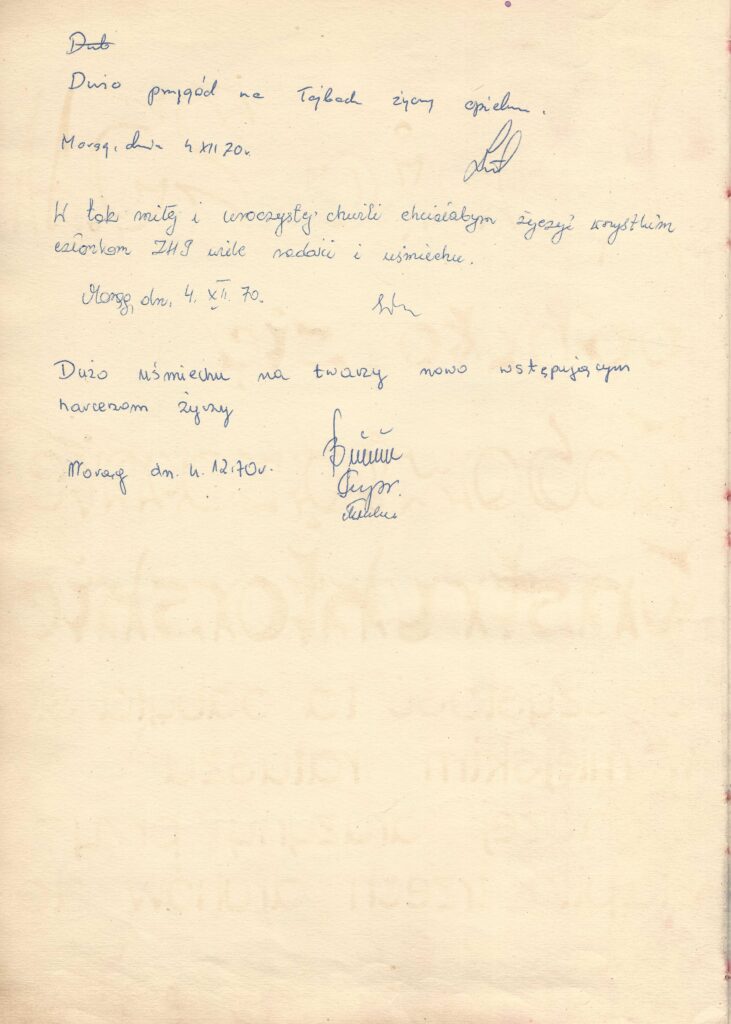 Dużo przygód na Tajbach życzy opiekun.
Morąg, dnia 4 XII 70r.
W tak miłej i uroczystej chwili chciałabym życzyć wszystkim
członkom ZHP wiele radości i uśmiechu.
Morąg, dn. 4. XII. 70.
Dużo uśmiechu na twarzy nowo wstępującym
harcerzom życzy
Morąg dn. 4. 12.70r.